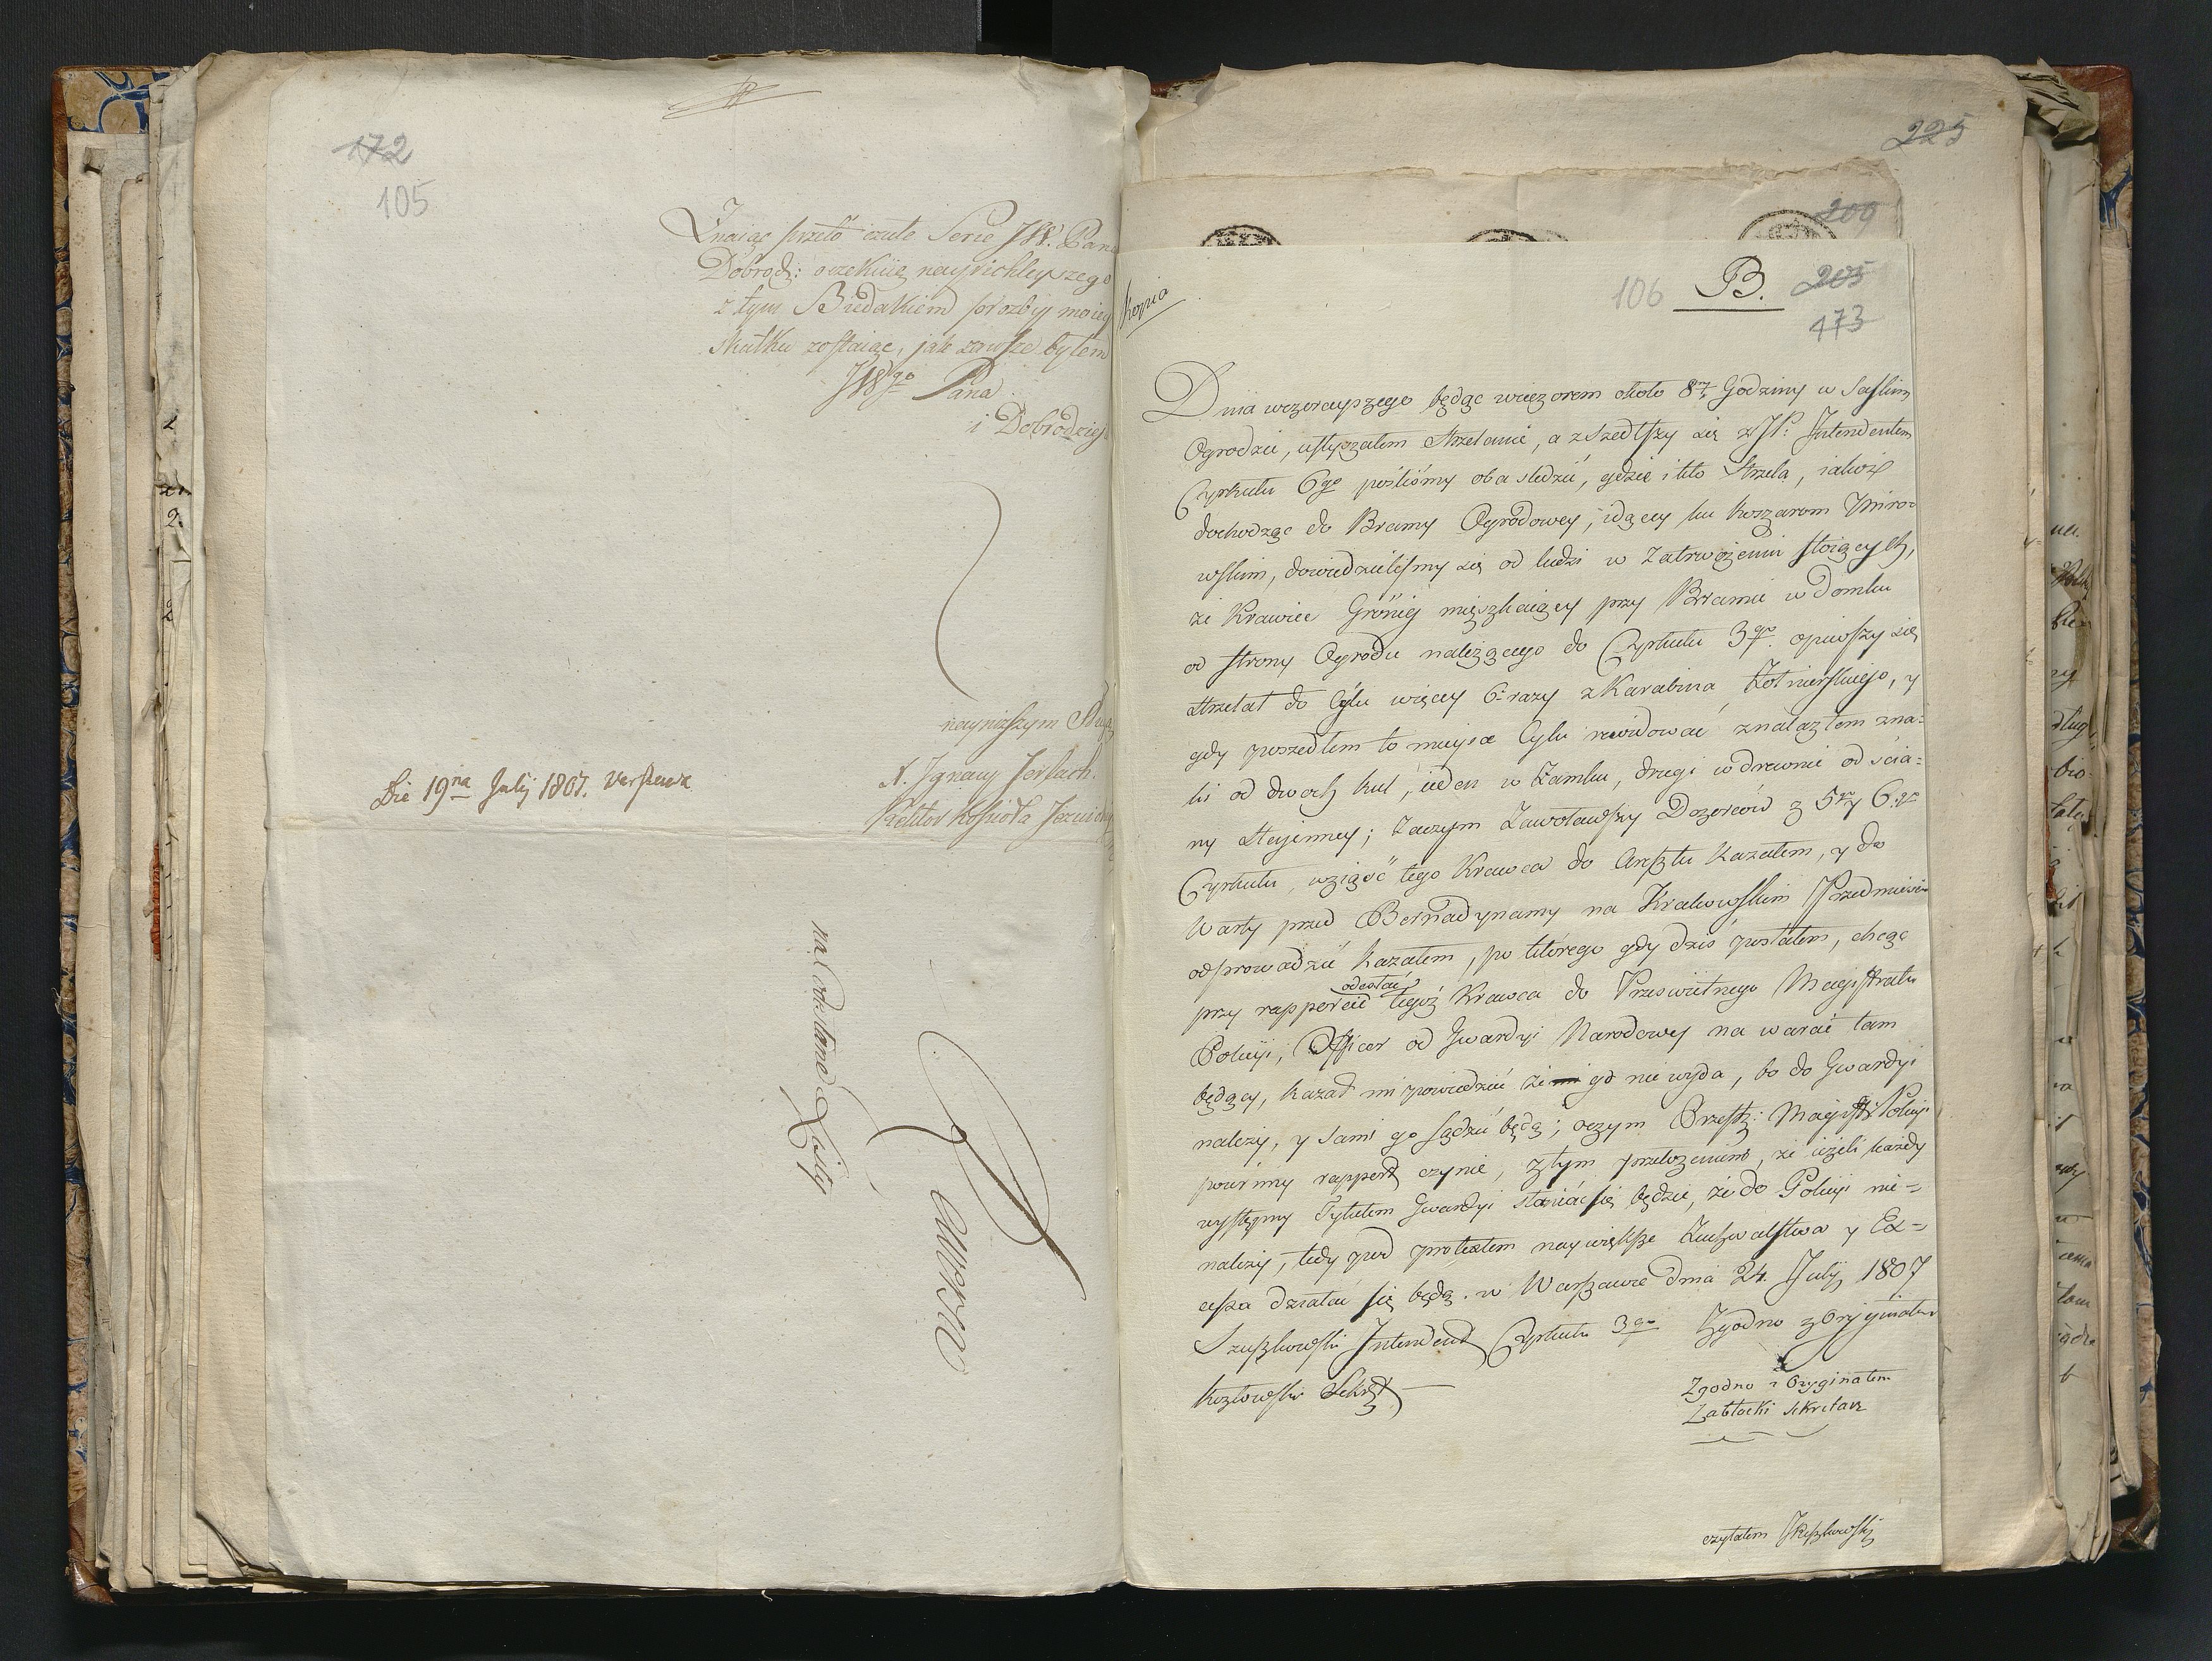 172
105
Znaiąc przeto czułe Serce JW. Pana
Dobrodz: oczekuię nayrichleyszego
z tym Biedakiem prozby moiey
skutku zostaiąc, jak zawsze byłem
JWgo Pana
i Dobrodzieja
nayniższym Sługą
X. Ignacy Gerlach.
Rektor Kościoła
Die 19na Julij 1807. Varsavia
na Odesłane
225
209
106 B. 205
173
Kopia
Dnia wczorayszego będąc wieczorem około 8ey Godziny w Saskim
Ogrodzie, usłyszałem strzelanie, a zszedłszy się z JP: Intendentem
Cyrkułu 6go pośliśmy oba sledzić, gdzie i kto Strzela, jakoż
dochodząc do Bramy Ogrodowey, idącey ku Koszarom Miro=
wskim, dowiedzieliśmy się od ludzi w Zatrwożeniu stoiących,
że Krawiec Grönig mięszkaiący przy Bramie w Domku
od strony Ogrodu należącego do Cyrkułu 3go opiwszy się
strzelał do Celu więcey 6. razy z Karabina Żołnierskiego, y
gdy poszedłem to mieysce Celu rewidować znalazłem zna=
ki od dwoch kul, ieden w Zamku, drugi w drewnie od scia=
ny Stajenney; Zaczym Zawoławszy Dozorców z 5go y 6.go
Cyrkułu, wziąść tego Krawca do Aresztu kazałem, y do
Warty przed Bernadynamy na Krakowskim Przedmieściu
odprowadzić kazałem, po którego gdy dzis posłałem, chcąc
przy rapporcie odesłać tegoż Krawca do Prześwietnego Magistratu
Policyi, Officer od Gwardyi Narodowey na warcie tam
będący, kazał mi powiedzieć że go nie wyda, bo do Gwardyi
należy, y sami go sądzić będą; oczym Przesw: Magistr: Policyi
powinny rapport czynie, ztym przełożeniem, że ieżeli każdy
występny Tytułem Gwardyi się będzie, że do Policyi nie=
należy, tedy pod protextem naywiększe Zuchwalstwa y Ex=
cessa działać się będą. w Warszawie dnia 24. Julij 1807
Szuszkowski Intendent Cyrkułu 3go Zgodno z Oryginałem
Kozłowski Sekr:
Zgodno z Oryginałem
Zabłocki sekretarz
czytałem